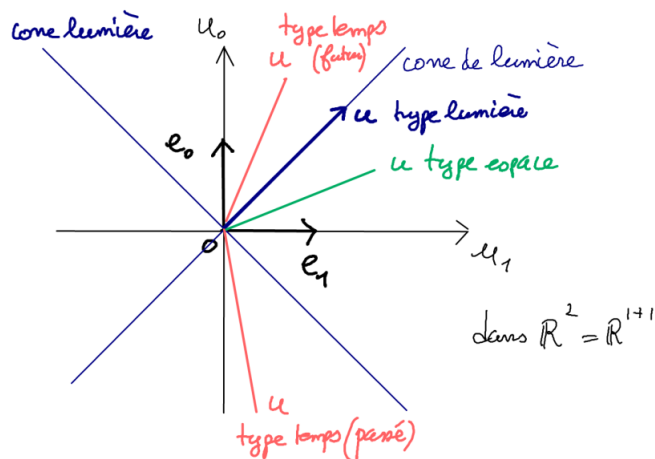 cone lumière
u₀
type temps
u (futur)
cone de lumière
u type lumière
e₀
u type espace
0
e₁
u₁
dans ℝ² = ℝ¹⁺¹
u
type temps (passé)